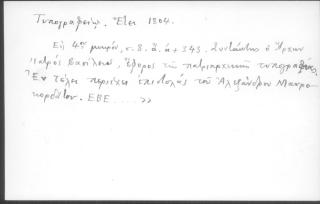 Τυπογραφείῳ. Ἔτει 1804.
Εἰς 4ον μικρόν, σ. 8. ἀ. ἀ + 343. Συντάκτης ὁ Ἄρχων
Ἰατρὸς Βασίλειος, Ἔφορος τῆς πατριαρχικῆς τυπογραφίας.
Ἐν τέλει περιέχει ἐπιστολὰς τοῦ Ἀλεξάνδρου Μαυρο-
κορδάτου. ΕΒΕ .... »